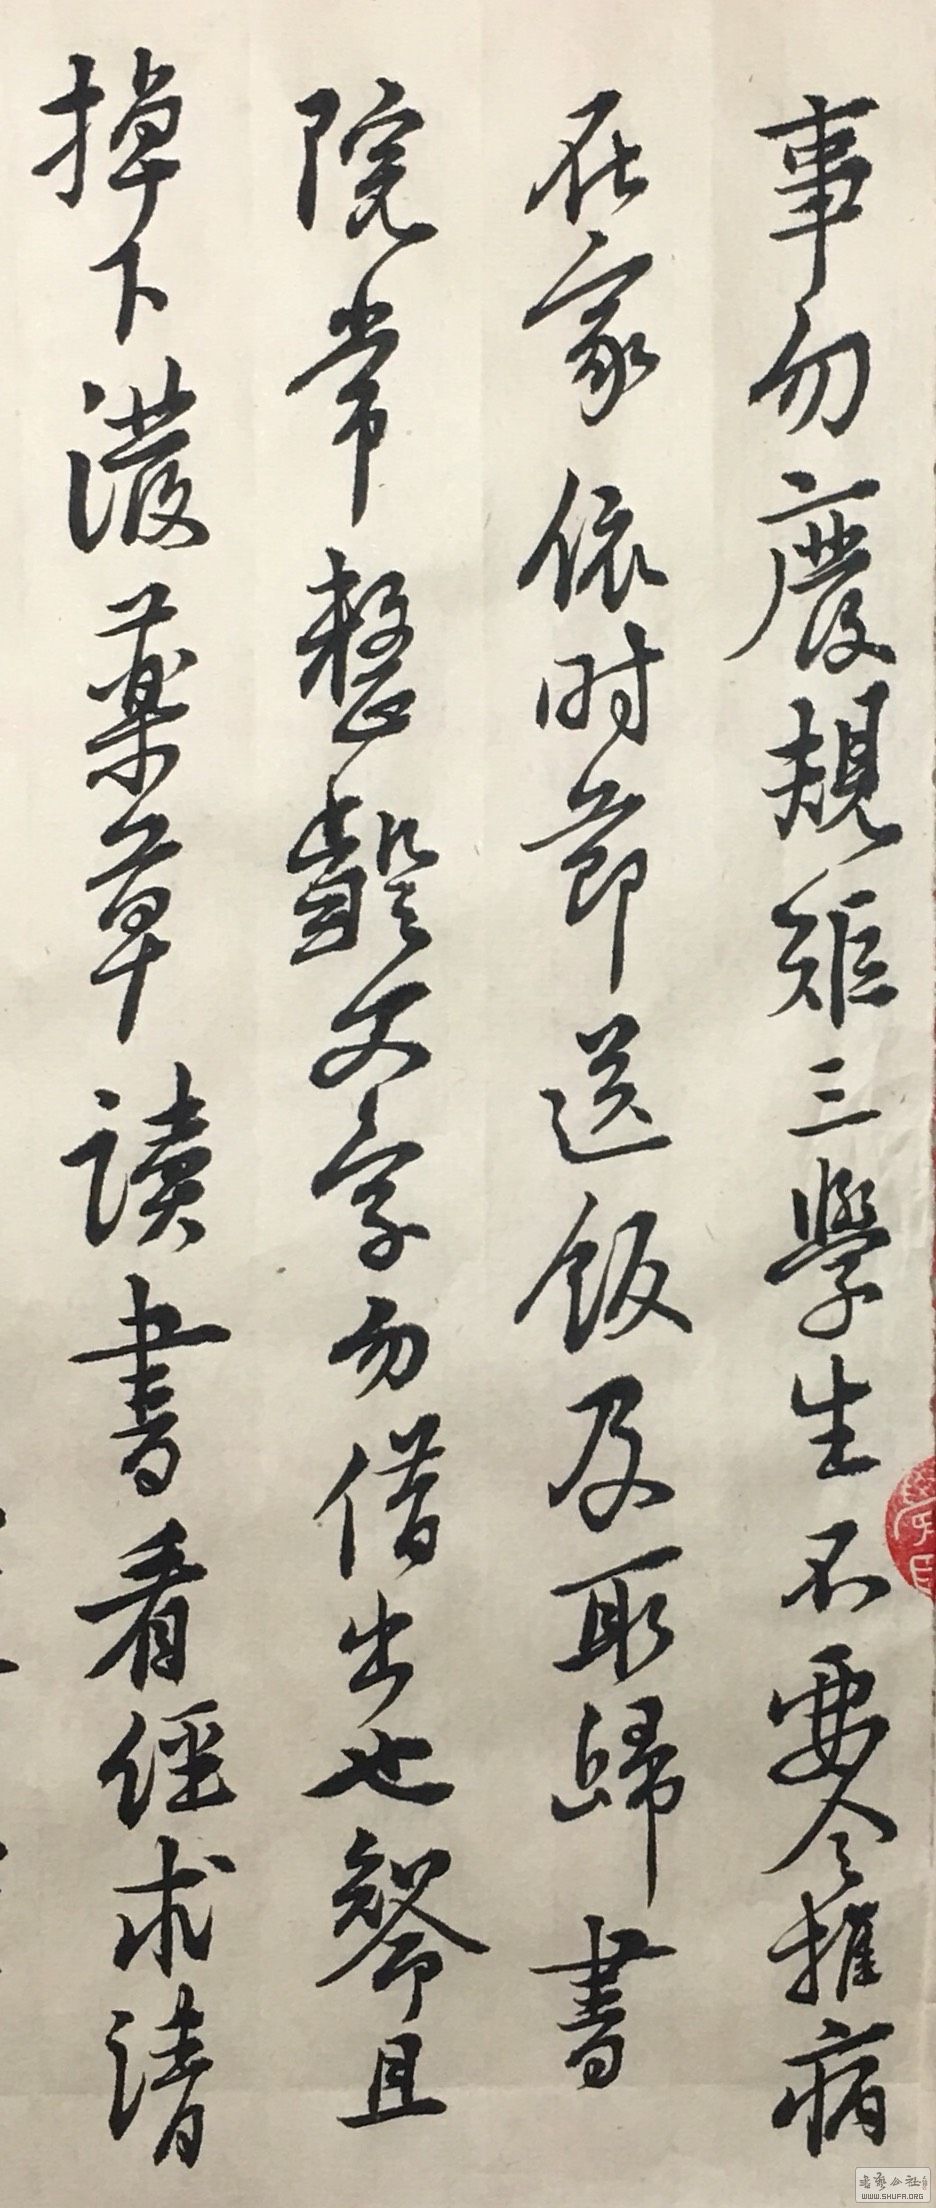 事勿廢規矩三學生不要令推病
在家依時節送飯及取歸書
院常整齪文字勿借出也琴且
掉下潑藥草讀書看經求清
WWW.SHUFA.ORG